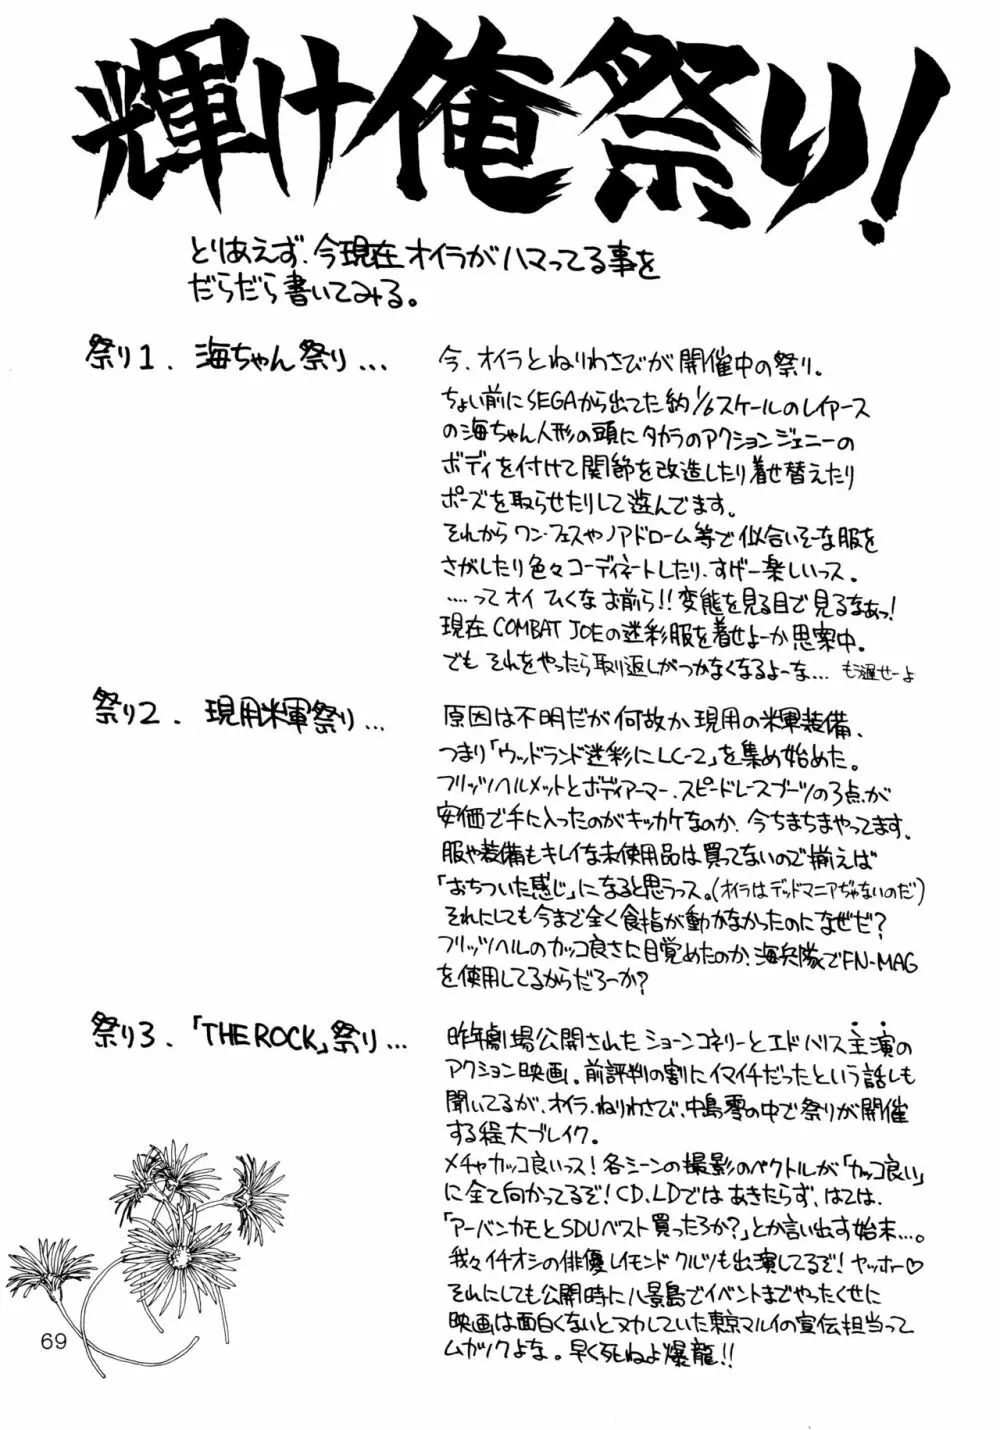 輝け俺祭り!
とりあえず、今現在オイラがハマってる事を
だらだら書いてみる。
祭り1、海ちゃん祭り...
今、オイラとねりわさびが開催中の祭り。
ちょい前にSEGAから出てた約1/6スケールのレイアース
の海ちゃん人形の頭にタカラのアクションジェニーの
ボディを付けて関節を改造したり着せ替えたり
ポーズを取らせたりして遊んでます。
それからワン・フェスやノアドローム等で似合いそーな服を
さがしたり色々コーディネートしたり、すげー楽しいっス。
....ってオイ ひくなお前ら!!変態を見る目で見るなぁっ!
現在COMBAT JOEの迷彩服を着せよーか思案中。
でもそれをやったら取り返しがつかなくなるよーな... もう遅せーよ
祭り2、現用米軍祭り...
原因は不明だが何故か現用の米軍装備、
つまり「ウッドランド迷彩にLC-2」を集め始めた。
フリッツヘルメットとボディアーマー、スピードレースブーツの3点が
安価で手に入ったのがキッカケなのか、今ちまちまやってます。
服や装備もキレイな未使用品は買ってないので揃えば
「おちついた感じ」になると思うっス。(オイラはデッドマニアぢゃないのだ)
それにしても今まで全く食指が動かなかったのになぜだ?
フリッツヘルのカッコ良さに目覚めたのか、海兵隊でFN-MAG
を使用してるからだろーか?
祭り3、「THE ROCK」祭り...
昨年劇場公開されたショーンコネリーとエドハリス主演の
アクション映画。前評判の割にイマイチだったという話しも
聞いてるが、オイラ、ねりわさび、中島零の中で祭りが開催
する程大ブレイク。
メチャカッコ良いっス!各シーンの撮影のベクトルが「カッコ良い」
に全て向かってるぞ!CD、LDではあきたらず、はては、
「アーバンカモとSDUベスト買ったろか?」とか言い出す始末...。
我々イチオシの俳優レイモンド クルツも出演してるぞ!ヤッホー♡
それにしても公開時に八景島でイベントまでやったくせに
映画は面白くないとヌカしていた東京マルイの宣伝担当って
ムカつくよな。早く死ねよ爆龍!!
69